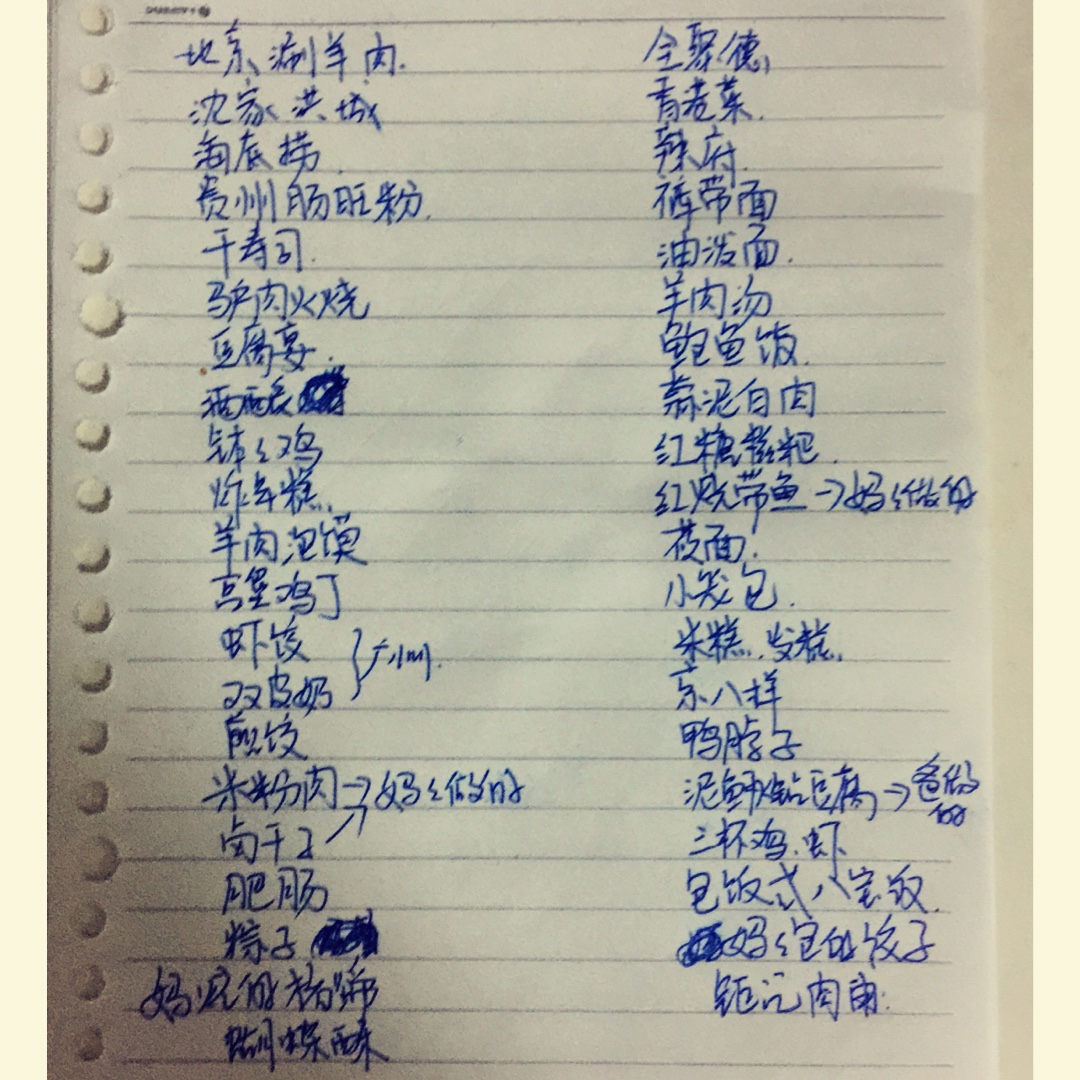 地京涮羊肉.
沈家洪城
海底捞.
贵州肠旺粉.
千寿司.
驴肉火烧
豆腐宴.
钵々鸡
炸年糕.
羊肉泡馍
宫皇鸡丁
虾饺
双皮奶
煎饺
米粉肉→妈々做的
卤干
肥肠
粽子
妈泥的
蝴蝶酥
全聚德,
青老菜.
辣府.
裤带面
油泼面.
羊肉汤
鲍鱼饭.
蒜泥白肉
红糖糍粑.
红烧带鱼→妈々做的
莜面.
小笼包.
米糕.发糕.
京八样
鸭脖子
泥鳅钻豆腐→爸做的
三杯鸡.虾
包饭式八宝饭.
妈々包的饺子
钜记肉